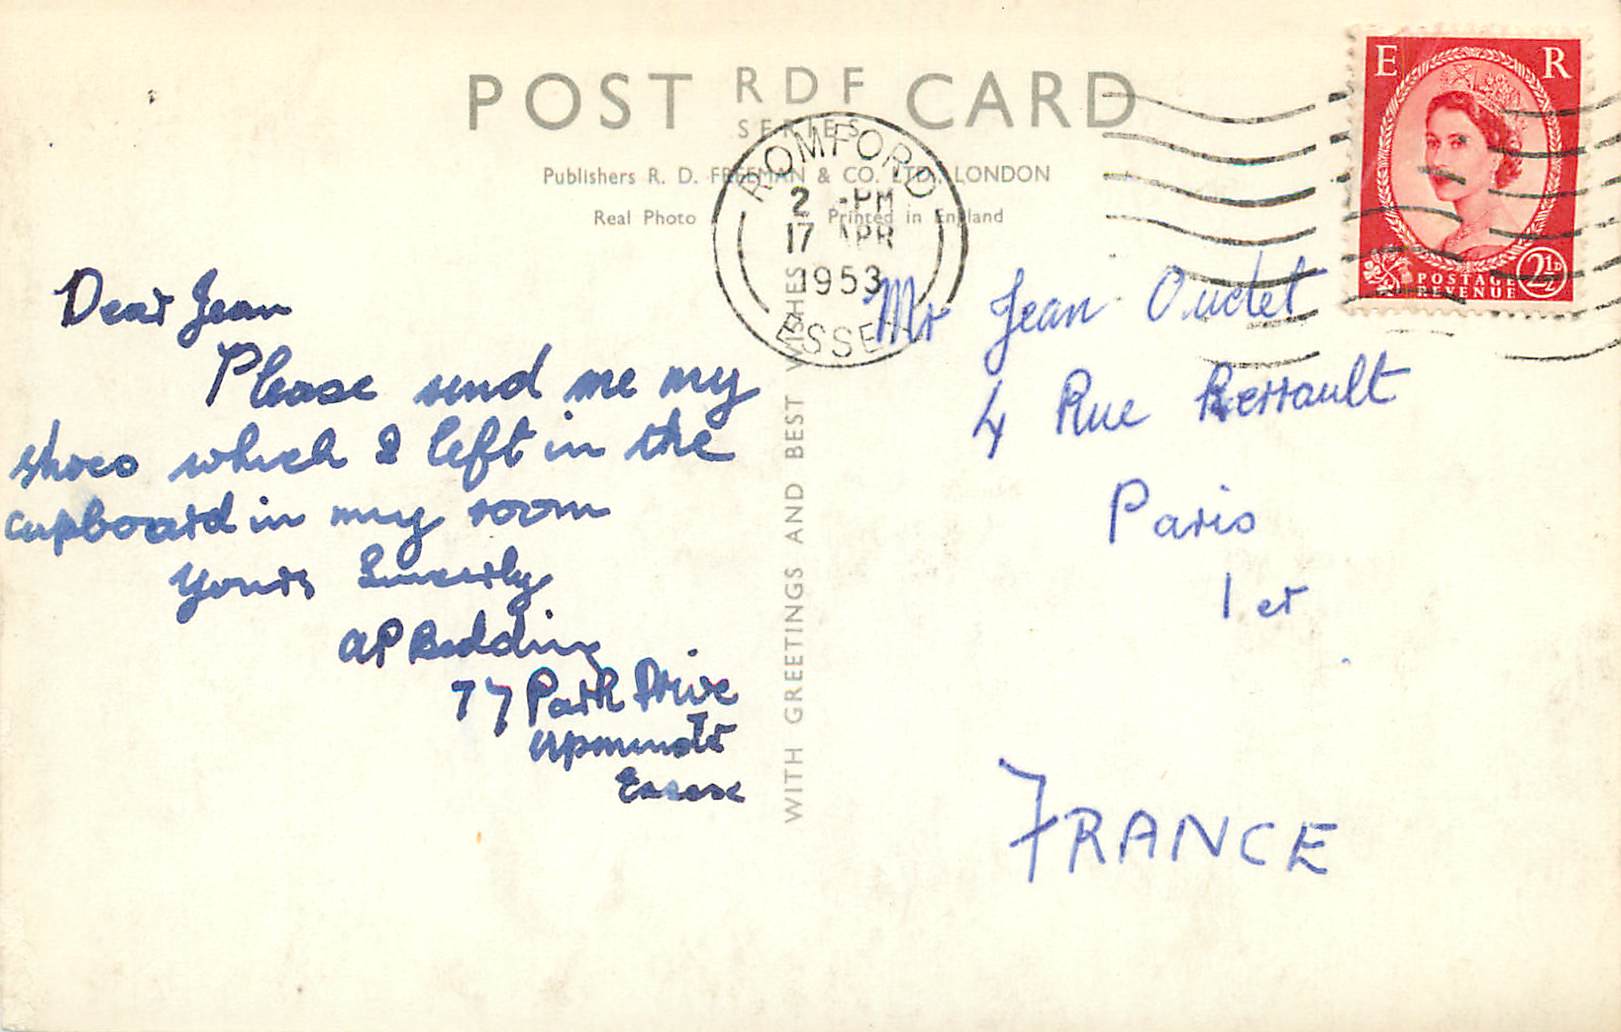 POST RDF CARD
SERIES
Publishers R. D. FREEMAN & CO. LTD., LONDON
Real Photo Printed in England
ROMFORD
2 -PM
17 APR
1953
ESSEX
E R
POSTAGE
REVENUE
2½D
Dear Jean
Please send me my
shoes which I left in the
cupboard in my room
Yours Sincerly
AP Bedding
77 Park Drive
Upminster
Essex
WITH GREETINGS AND BEST WISHES
Mr Jean Oudet
4 Rue Perrault
Paris
1 er
FRANCE